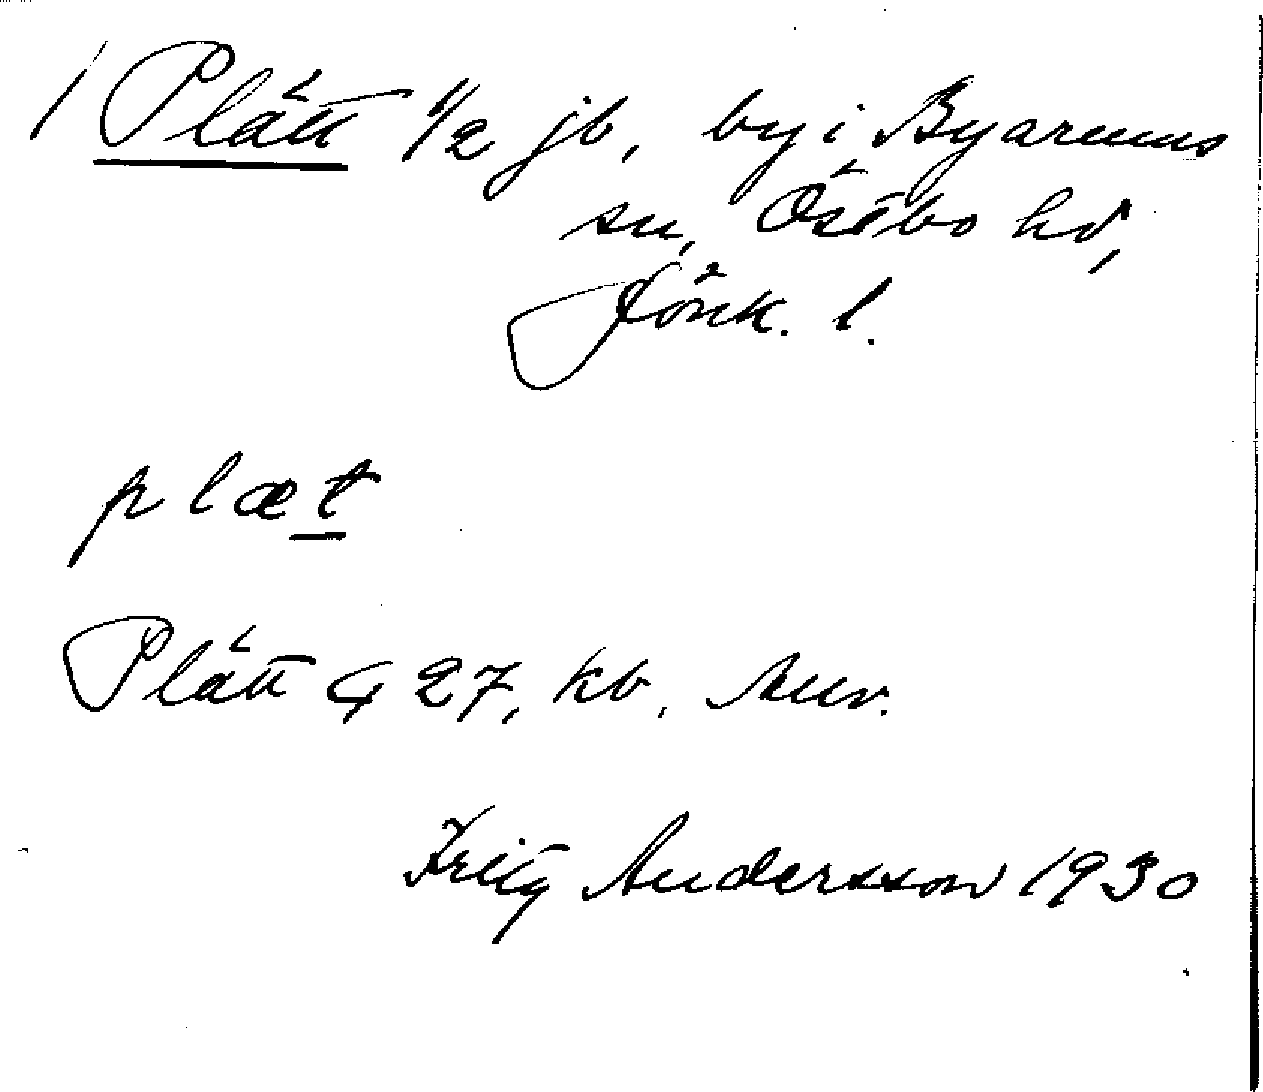 / Plätt 1/2 jb, by i Byarums
sn, Östbo hd,
Jönk. l.
plæt
Plätt G 27, kb,
Fritz Andersson 1930